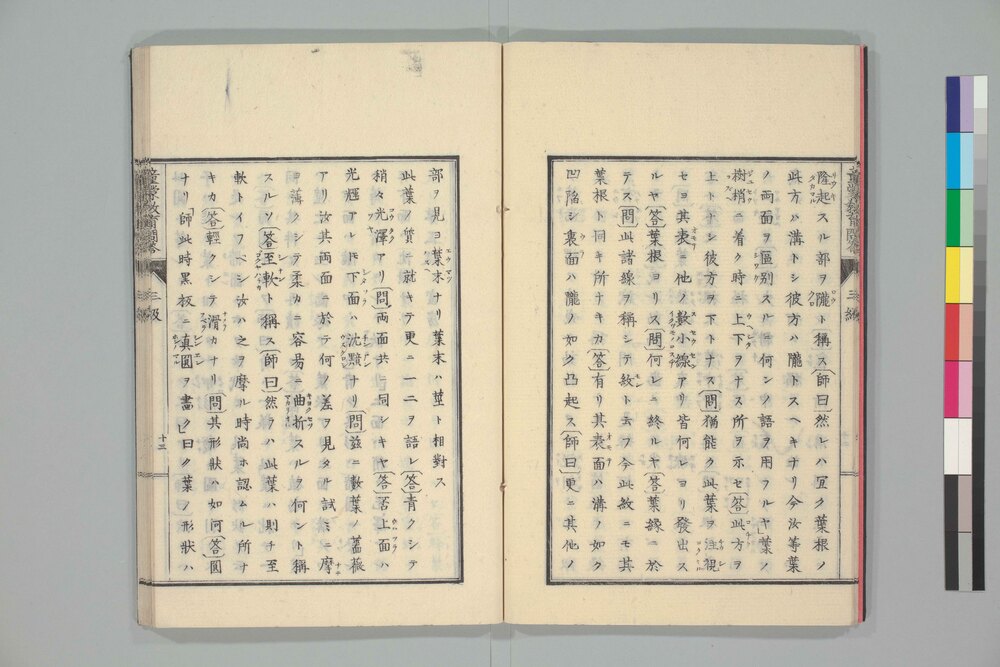 隆起スル部ヲ隴ト稱ス〔師曰〕然レハ宜ク葉根ノ
此方ハ溝トシ彼方ハ隴トスヘキナリ今汝等葉
ノ兩面ヲ區別スルニ何ンノ語ヲ用フルヤ」葉ノ
樹梢ニ着ク時ニ上下ヲナス所ヲ示セ〔答〕此方ヲ
上トナシ彼方ヲ下トナス〔問〕猶能ク此葉ヲ注視
セヨ其表ニ他ノ數小線アリ皆何レヨリ發出ス
ルヤ〔答〕葉根ヨリス〔問〕何レニ終ルヤ〔答〕葉緣ニ於
テス〔問〕此諸線ヲ稱シテ紋ト云フ今此紋ニモ其
葉根ト同キ所ナキカ〔答〕有リ其表面ハ溝ノ如ク
凹陷シ裏面ハ隴ノ如ク凸起ス〔師曰〕更ニ其他ノ
部ヲ見ヨ葉末ナリ葉末ハ莖ト相對ス
此葉ノ質ニ就キテ更ニ一二ヲ語レ〔答〕青クシテ
稍々光澤アリ〔問〕兩面共ニ同シキヤ〔答〕否上面ハ
光輝アレ𪜈下面ハ沈黯ナリ〔問〕茲ニ數葉ノ薔薇
アリ汝其兩面ニ於テ何ノ差ヲ見タルカ試ミニ摩
ヨ薄クシテ柔カニ容易ニ曲折スルヲ何ント稱
スルソ〔答〕至軟ト稱ス〔師曰〕然ラハ此葉ハ則チ至
軟トイフヘシ汝ハ之ヲ摩ル時尚ホ認ムル所ナ
キカ〔答〕輕クシテ滑カナリ〔問〕其形狀ハ如何〔答〕圓
ナリ「師」此時黑板ニ眞圓ヲ畫ク」曰ク葉ノ形狀ハ
三級
十三
三級